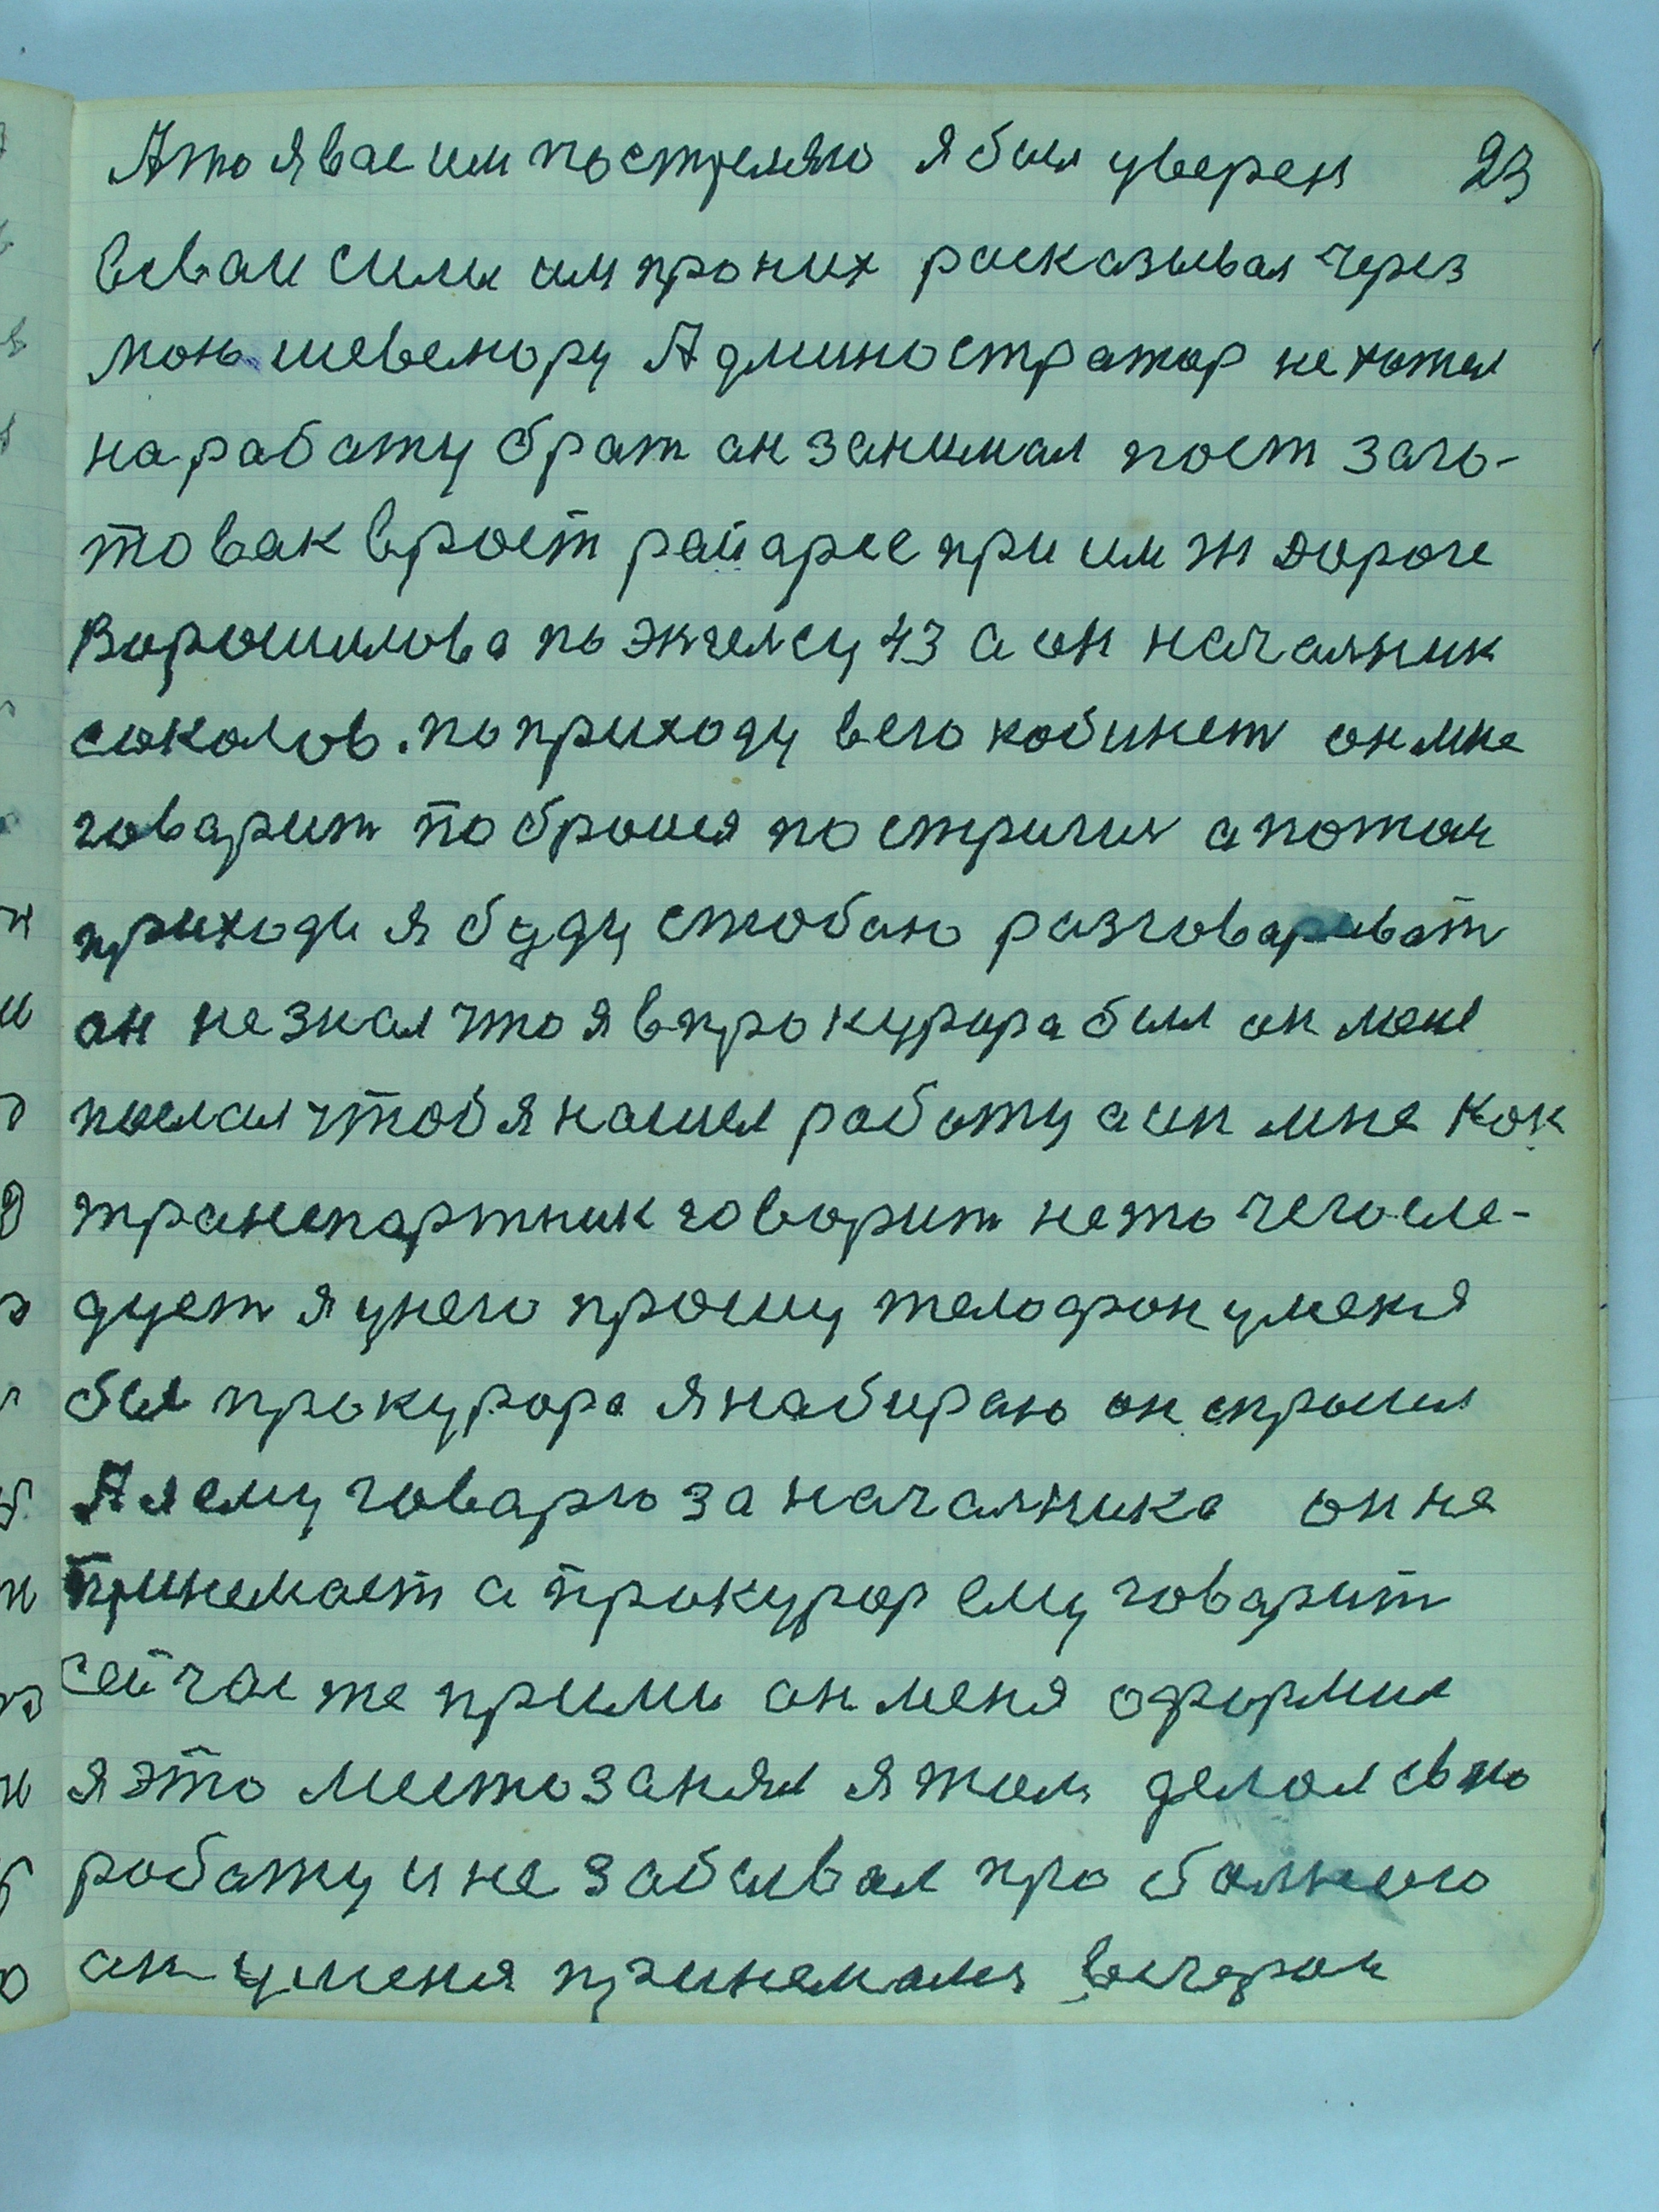 А то я вас им постреляю я был уверен 23
всваи силы им про них расказывал через
мою шевелюру Админостратор не хотел
на работу брат ан занимал пост заго-
товак врост райарсе при им ж дороге
Ворошилова по энгелсу 43 а он началник
соколов. по приходу вего кобинет он мне
говарит побройся постригис а потом
приходи я буду стобаю разговариват
ан незнал что я в прокурора был он мене
послал чтоб я нашел работу а он мне как
транспартник говорит не то чего сле-
дует я унего прошу телофон уменя
был прокурора я набираю он спросил
А я ему говарю за началника он не
принемает а прокурор ему говарит
сейчас же прими он меня оформил
я это место занял я там делал свою
работу и не забывал про балнога
ан уменя принемался вечером